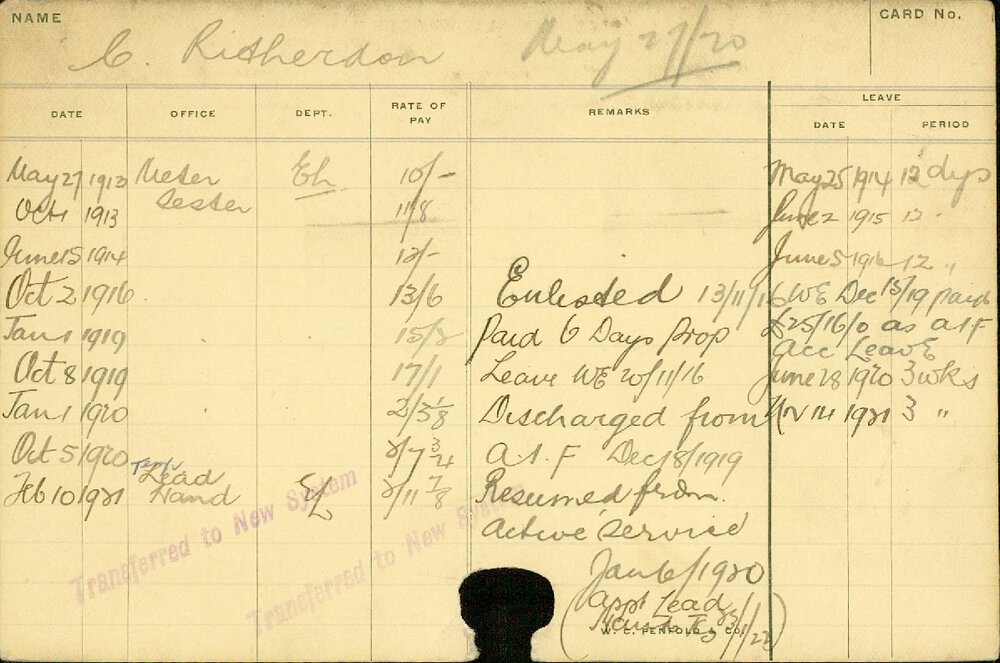 NAME
CARD No.
C. Ritherdon May 27/20
DATE OFFICE DEPT. RATE OF PAY REMARKS LEAVE
DATE PERIOD
May 27 1913 Meter El. 10/- May 25 1914 12 dys
Oct 1 1913 Tester 11/8 June 2 1915 12 "
June 15 1914 12/- June 5 1916 12 "
Oct 2 1916 13/6 Enlisted 13/11/16 WE Dec 13/19 paid
Jan 1 1919 15/8 Paid 6 Days Prop £25/16/0 as AIF
Acc Leave
Oct 8 1919 17/1 Leave WE 20/11/16 June 28 1920 3 wks
Jan 1 1920 2/5 1/8 Discharged from Nov 14 1921 3 "
Oct 5 1920 2/7 3/4 A.I.F Dec 18/1919
Feb 10 1921 Lead Hand El 2/11 7/8 Resumed from
Active Service
Jan 6/1920
(Appt Lead
W. C. PENFOLD & CO.
Transferred to New System
Transferred to New System